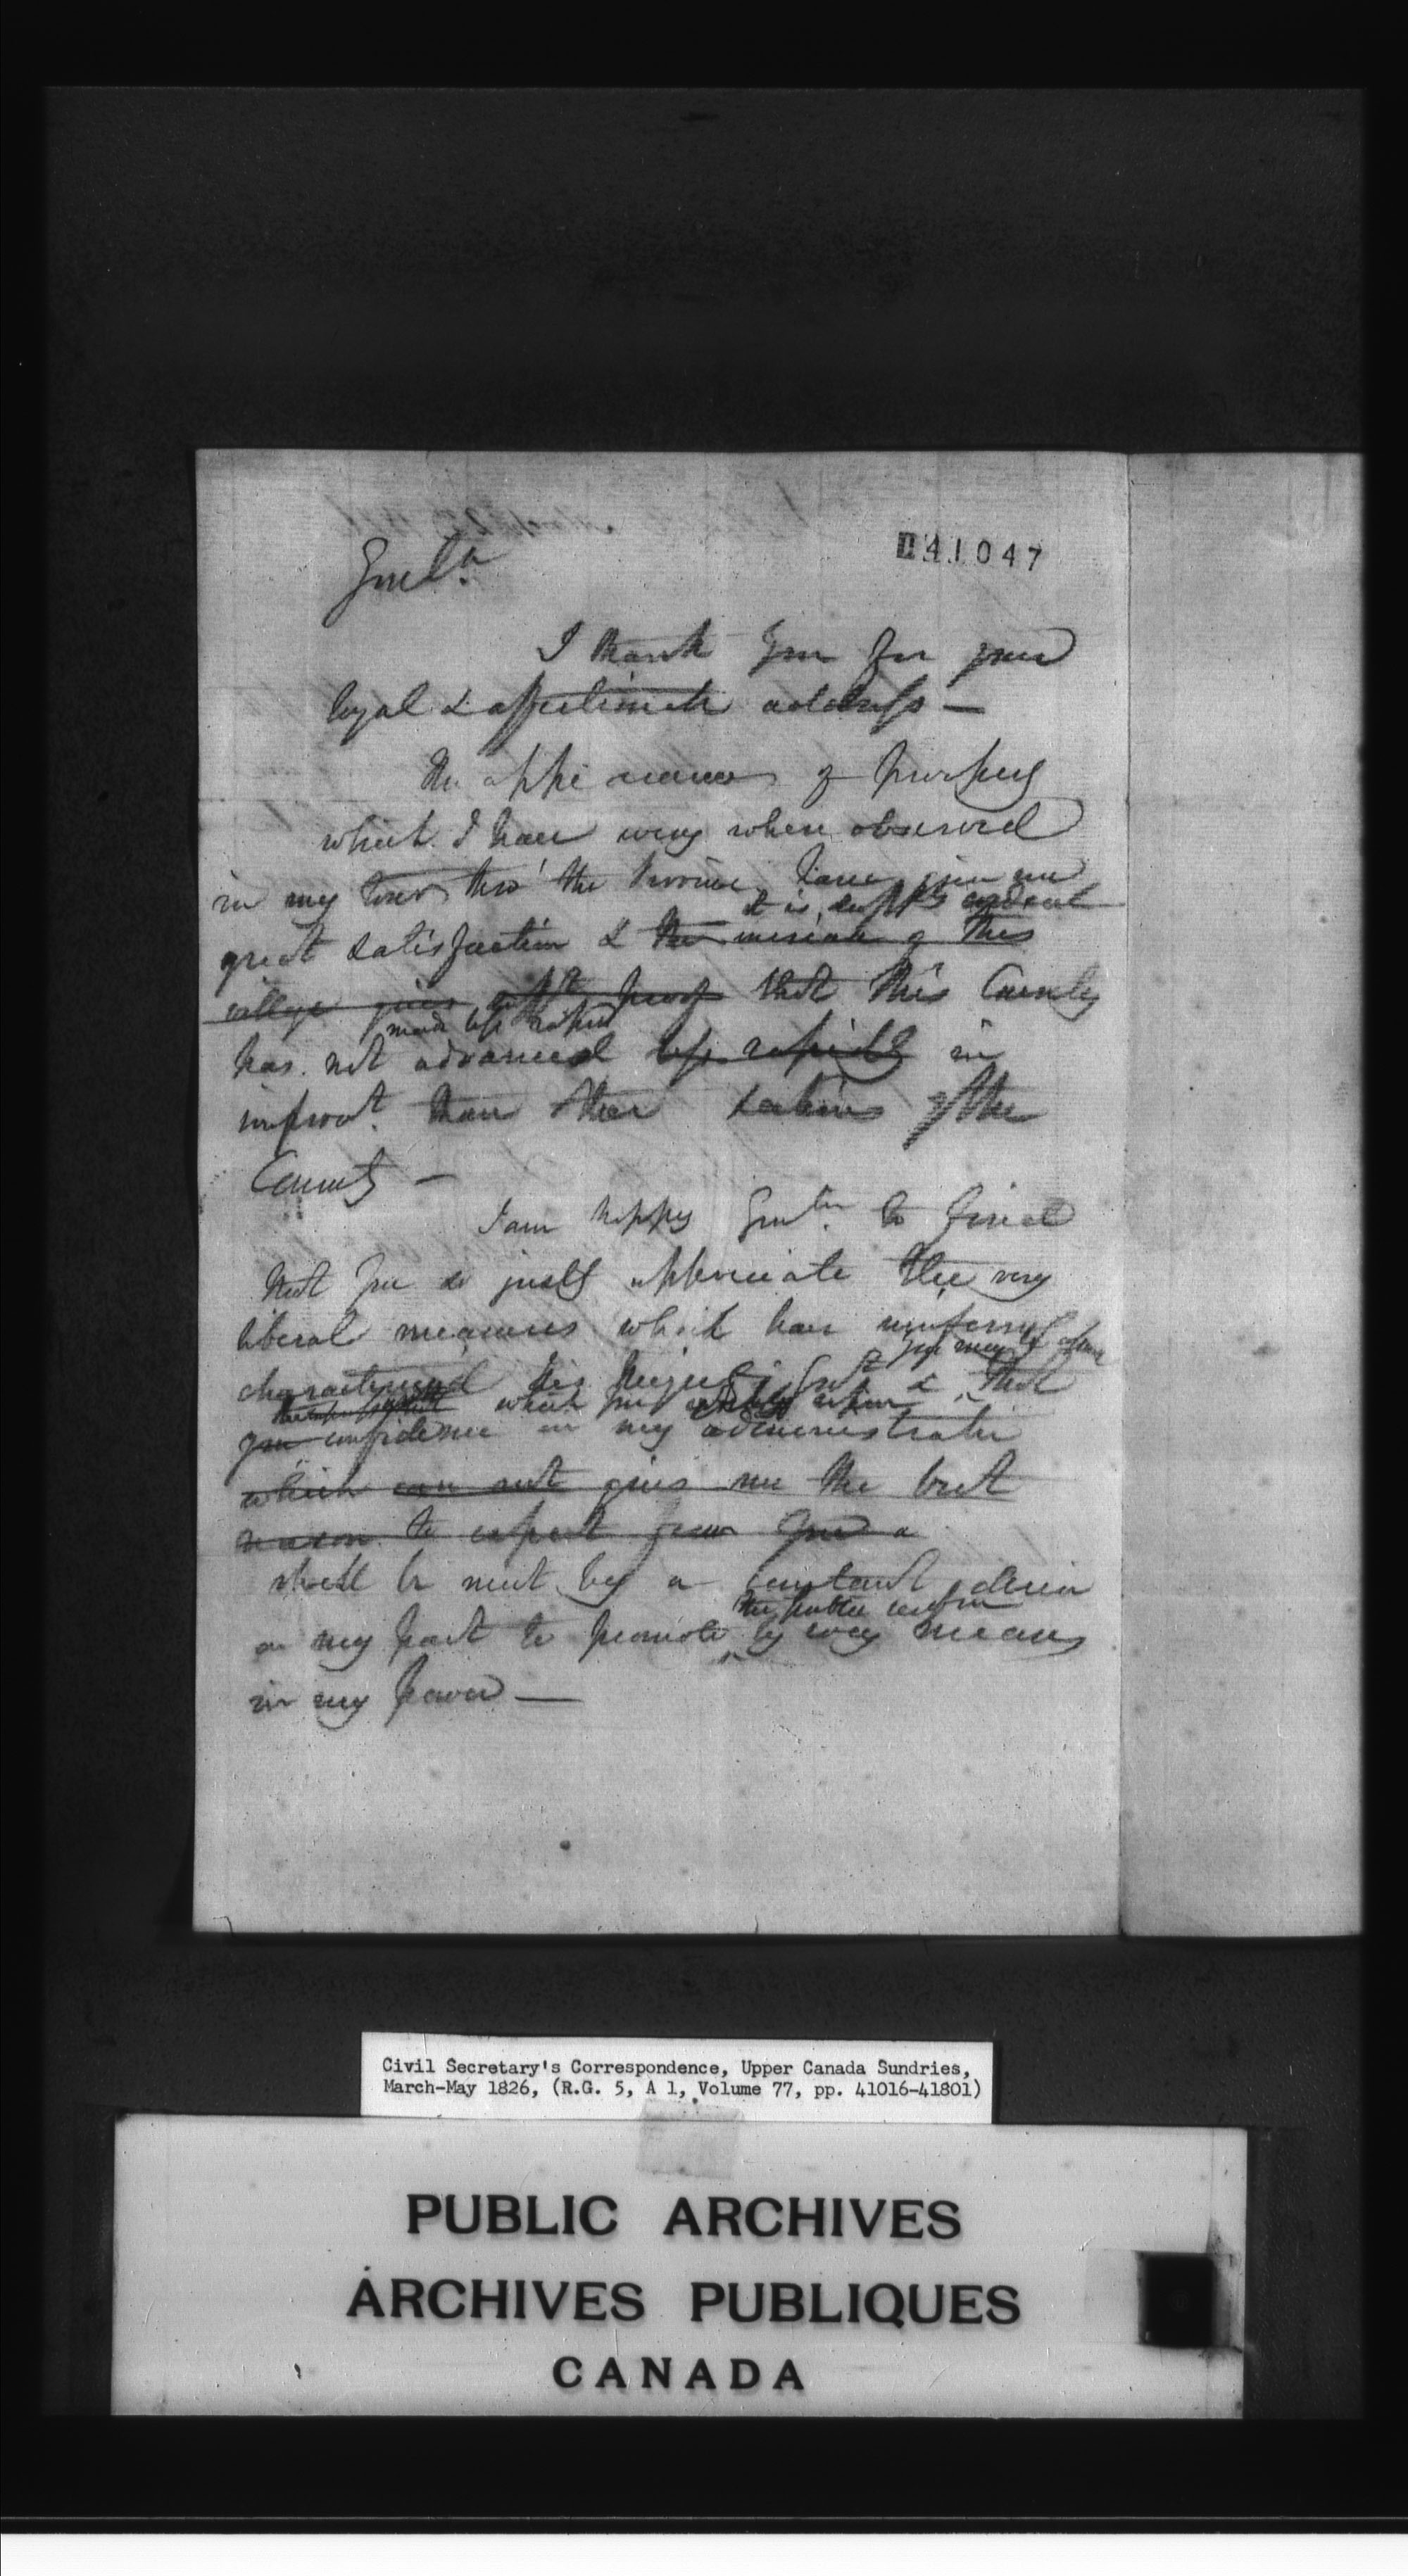 041047
Gentln
I thank you for your
loyal & affectionate address —
The appearances of prosperity
which I have every where observed
in my tour thro' the Province, have given me
it is, evident
great satisfaction & the increase of this
village gives proof that this County
made less rapid
has not advanced less rapidly in
improvt. than other sections of the
Country —
I am happy Gentln. to find
that you so justly appreciate the very
liberal measures which have uniformly
you may be
characterized his Majesty's Govt & that
which you
your confidence in my administration
which can not give me the best
reason to expect from you a
shall be met by a constant desire
the public
on my part to promote by every means
in my power —
Civil Secretary's Correspondence, Upper Canada Sundries,
March-May 1826, (R.G. 5, A 1, Volume 77, pp. 41016-41801)
PUBLIC ARCHIVES
ARCHIVES PUBLIQUES
CANADA